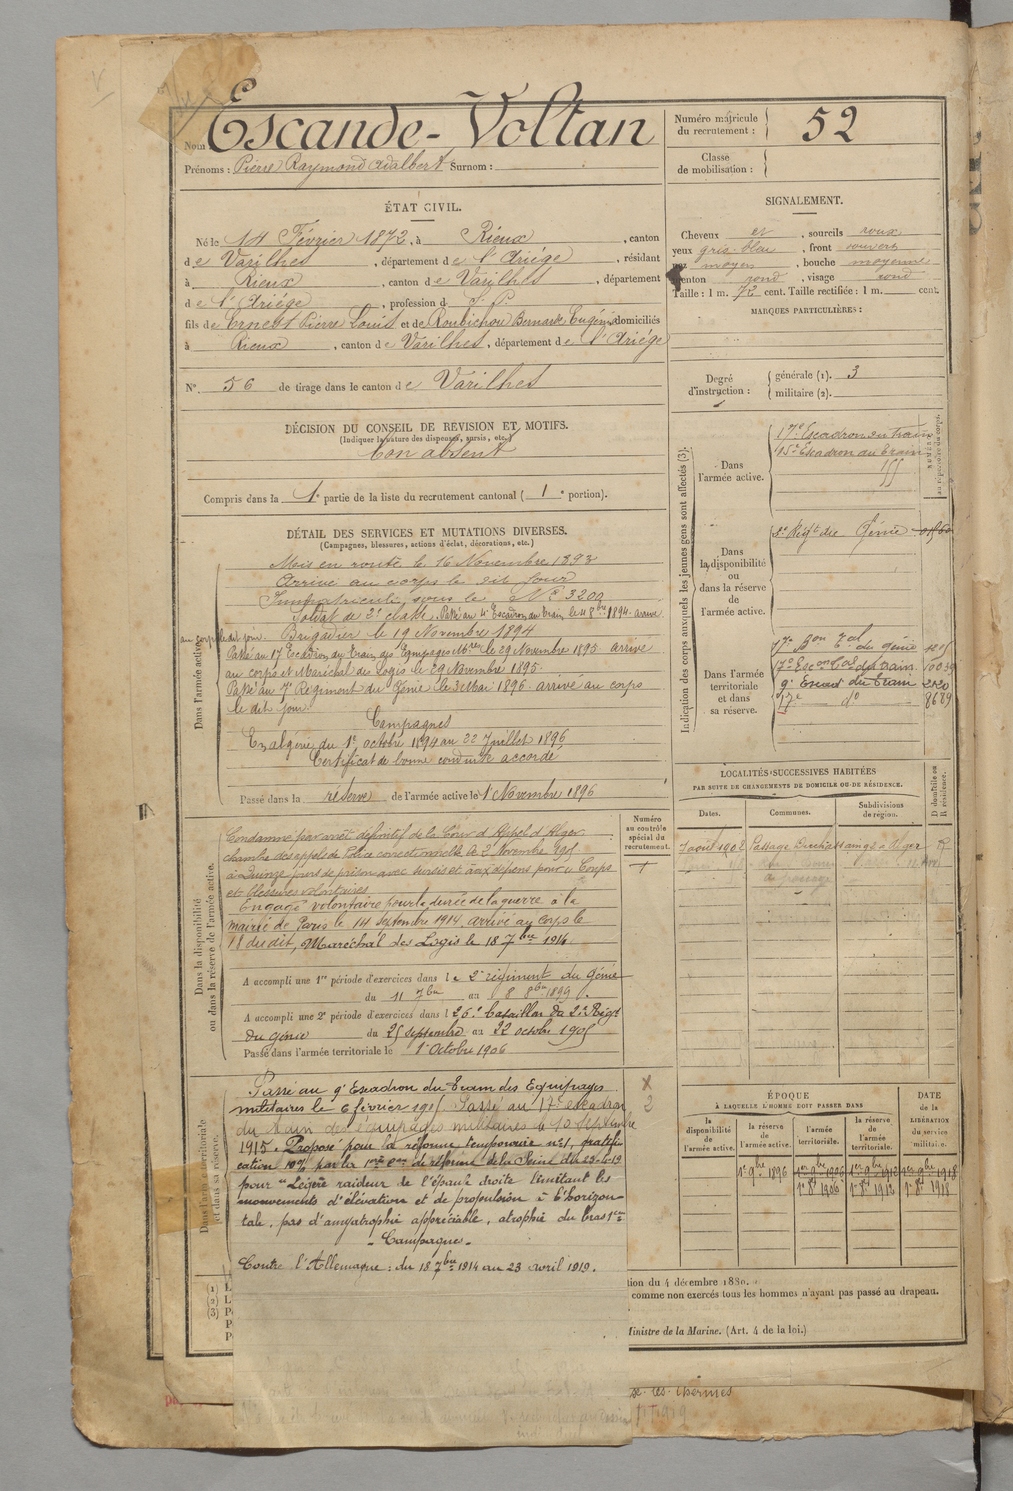 Nom Escande-Voltan
Prénoms : Pierre Raymond Adalbert Surnom :
ÉTAT CIVIL.
Né le 14 Février 1872, à Rieux, canton
de Varilhes, département de l'Ariége, résidant
à Rieux, canton de Varilhes, département
de l'Ariége, profession d S. P.
fils de Ernest Pierre Louis et de Roubichou Bernarde Eugénie domiciliés
à Rieux, canton de Varilhes, département de l'Ariége
N° 56 de tirage dans le canton de Varilhes
DÉCISION DU CONSEIL DE REVISION ET MOTIFS.
(Indiquer la nature des dispenses, sursis, etc.)
bon absent
Compris dans la 1e partie de la liste du recrutement cantonal (1e portion).
DÉTAIL DES SERVICES ET MUTATIONS DIVERSES.
(Campagnes, blessures, actions d'éclat, décorations, etc.)
Dans l'armée active.
Mis en route le 16 Novembre 1893
Arrivé au corps le dit jour
Immatriculé sous le N° 3209
Soldat de 2e classe. Passé au 4e Escadron du Train le 4 8bre 1894. arrivé
au corps le dit jour. Brigadier le 19 Novembre 1894
Passé au 17 Escadron du Train des Equipages Mres le 29 Novembre 1895 arrivé
au corps et Maréchal des Logis le 29 Novembre 1895.
Passé au 7e Régiment du Génie le 3 Mai 1896. arrivé au corps
le dit jour
Campagnes
En algérie du 1er octobre 1894 au 22 Juillet 1896
Certificat de bonne conduite accordé
Passé dans la réserve de l'armée active le 1 Novembre 1896
Dans la disponibilité
ou dans la réserve de l'armée active.
Numéro
au contrôle
spécial du
recrutement.
Condamné par arrêt définitif de la Cour d'Appel d'Alger
chambre des appels de Police correctionnelle le 2 Novembre 1905
à Quinze jours de prison avec sursis et aux dépens pour : Coups
et blessures volontaires
Engagé volontaire pour la durée de la guerre à la
mairie de Paris le 14 septembre 1914, arrivé au corps le
dudit, Maréchal des Logis le 18 7bre 1914.
A accompli une 1re période d'exercices dans le 2e régiment du Génie
du 11 7bre au 8 8bre 1899.
A accompli une 2e période d'exercices dans l 26e bataillon du 2e Régt
du génie du 25 septembre au 22 octobre 1905
Passé dans l'armée territoriale le 1er Octobre 1906
Dans l'armée territoriale
et dans sa réserve.
Passé au 9e Escadron du Train des Equipages
militaires le 6 février 1915. Passé au 17e escadron
du train des équipages militaires le 10 Septembre
1915. Proposé pour la réforme temporaire n° 1, gratifi-
cation 10% par la 1ère Con de réforme de la Seine du 23-4-19
pour "Légère raideur de l'épaule droite limitant les
mouvements d'élévation et de propulsion à l'horizon-
tale, pas d'amyotrophie appréciable, atrophie du bras 1cm
- Campagne -
Contre l'Allemagne : du 18 7bre 1914 au 23 avril 1919.
Numéro matricule
du recrutement : 52
Classe
de mobilisation :
SIGNALEMENT.
Cheveux et, sourcils roux
yeux gris-bleu, front ouvert
nez moyen, bouche moyenne
menton rond, visage rond
Taille : 1 m. 72 cent. Taille rectifiée : 1 m. cent.
MARQUES PARTICULIÈRES :
Degré
d'instruction :
générale (1). 3
militaire (2).
Indication des corps auxquels les jeunes gens sont affectés (3).
Dans
l'armée active.
17e Escadron du train
15e Escadron du train
Dans
la disponibilité
ou
dans la réserve
de
l'armée active.
2e Régt du Génie
Dans l'armée
territoriale
et dans
sa réserve.
17e Bon Tal du génie
17e Escon Tal du train
9e Escad du Train 2120
17e do 8689
LOCALITÉS SUCCESSIVES HABITÉES
PAR SUITE DE CHANGEMENTS DE DOMICILE OU DE RÉSIDENCE.
Dates.
Communes.
Subdivisions
de région.
D domicile ou
R résidence.
7 aout 1902 Alger R
ÉPOQUE
À LAQUELLE L'HOMME DOIT PASSER DANS
la
disponibilité
de
l'armée active.
la réserve
de
l'armée active.
l'armée
territoriale.
la réserve
de
l'armée
territoriale.
DATE
de la
LIBÉRATION
du service
militaire.
1er 9bre 1896 1er 9bre 1906 1er 9bre 1912 1er 9bre 1918
1er 8bre 1906 1er 8bre 1912 1er 8bre 1918
tion du 4 décembre 1889.
comme non exercés tous les hommes n'ayant pas passé au drapeau.
Ministre de la Marine. (Art. 4 de la loi.)
(1)
(2)
(3)